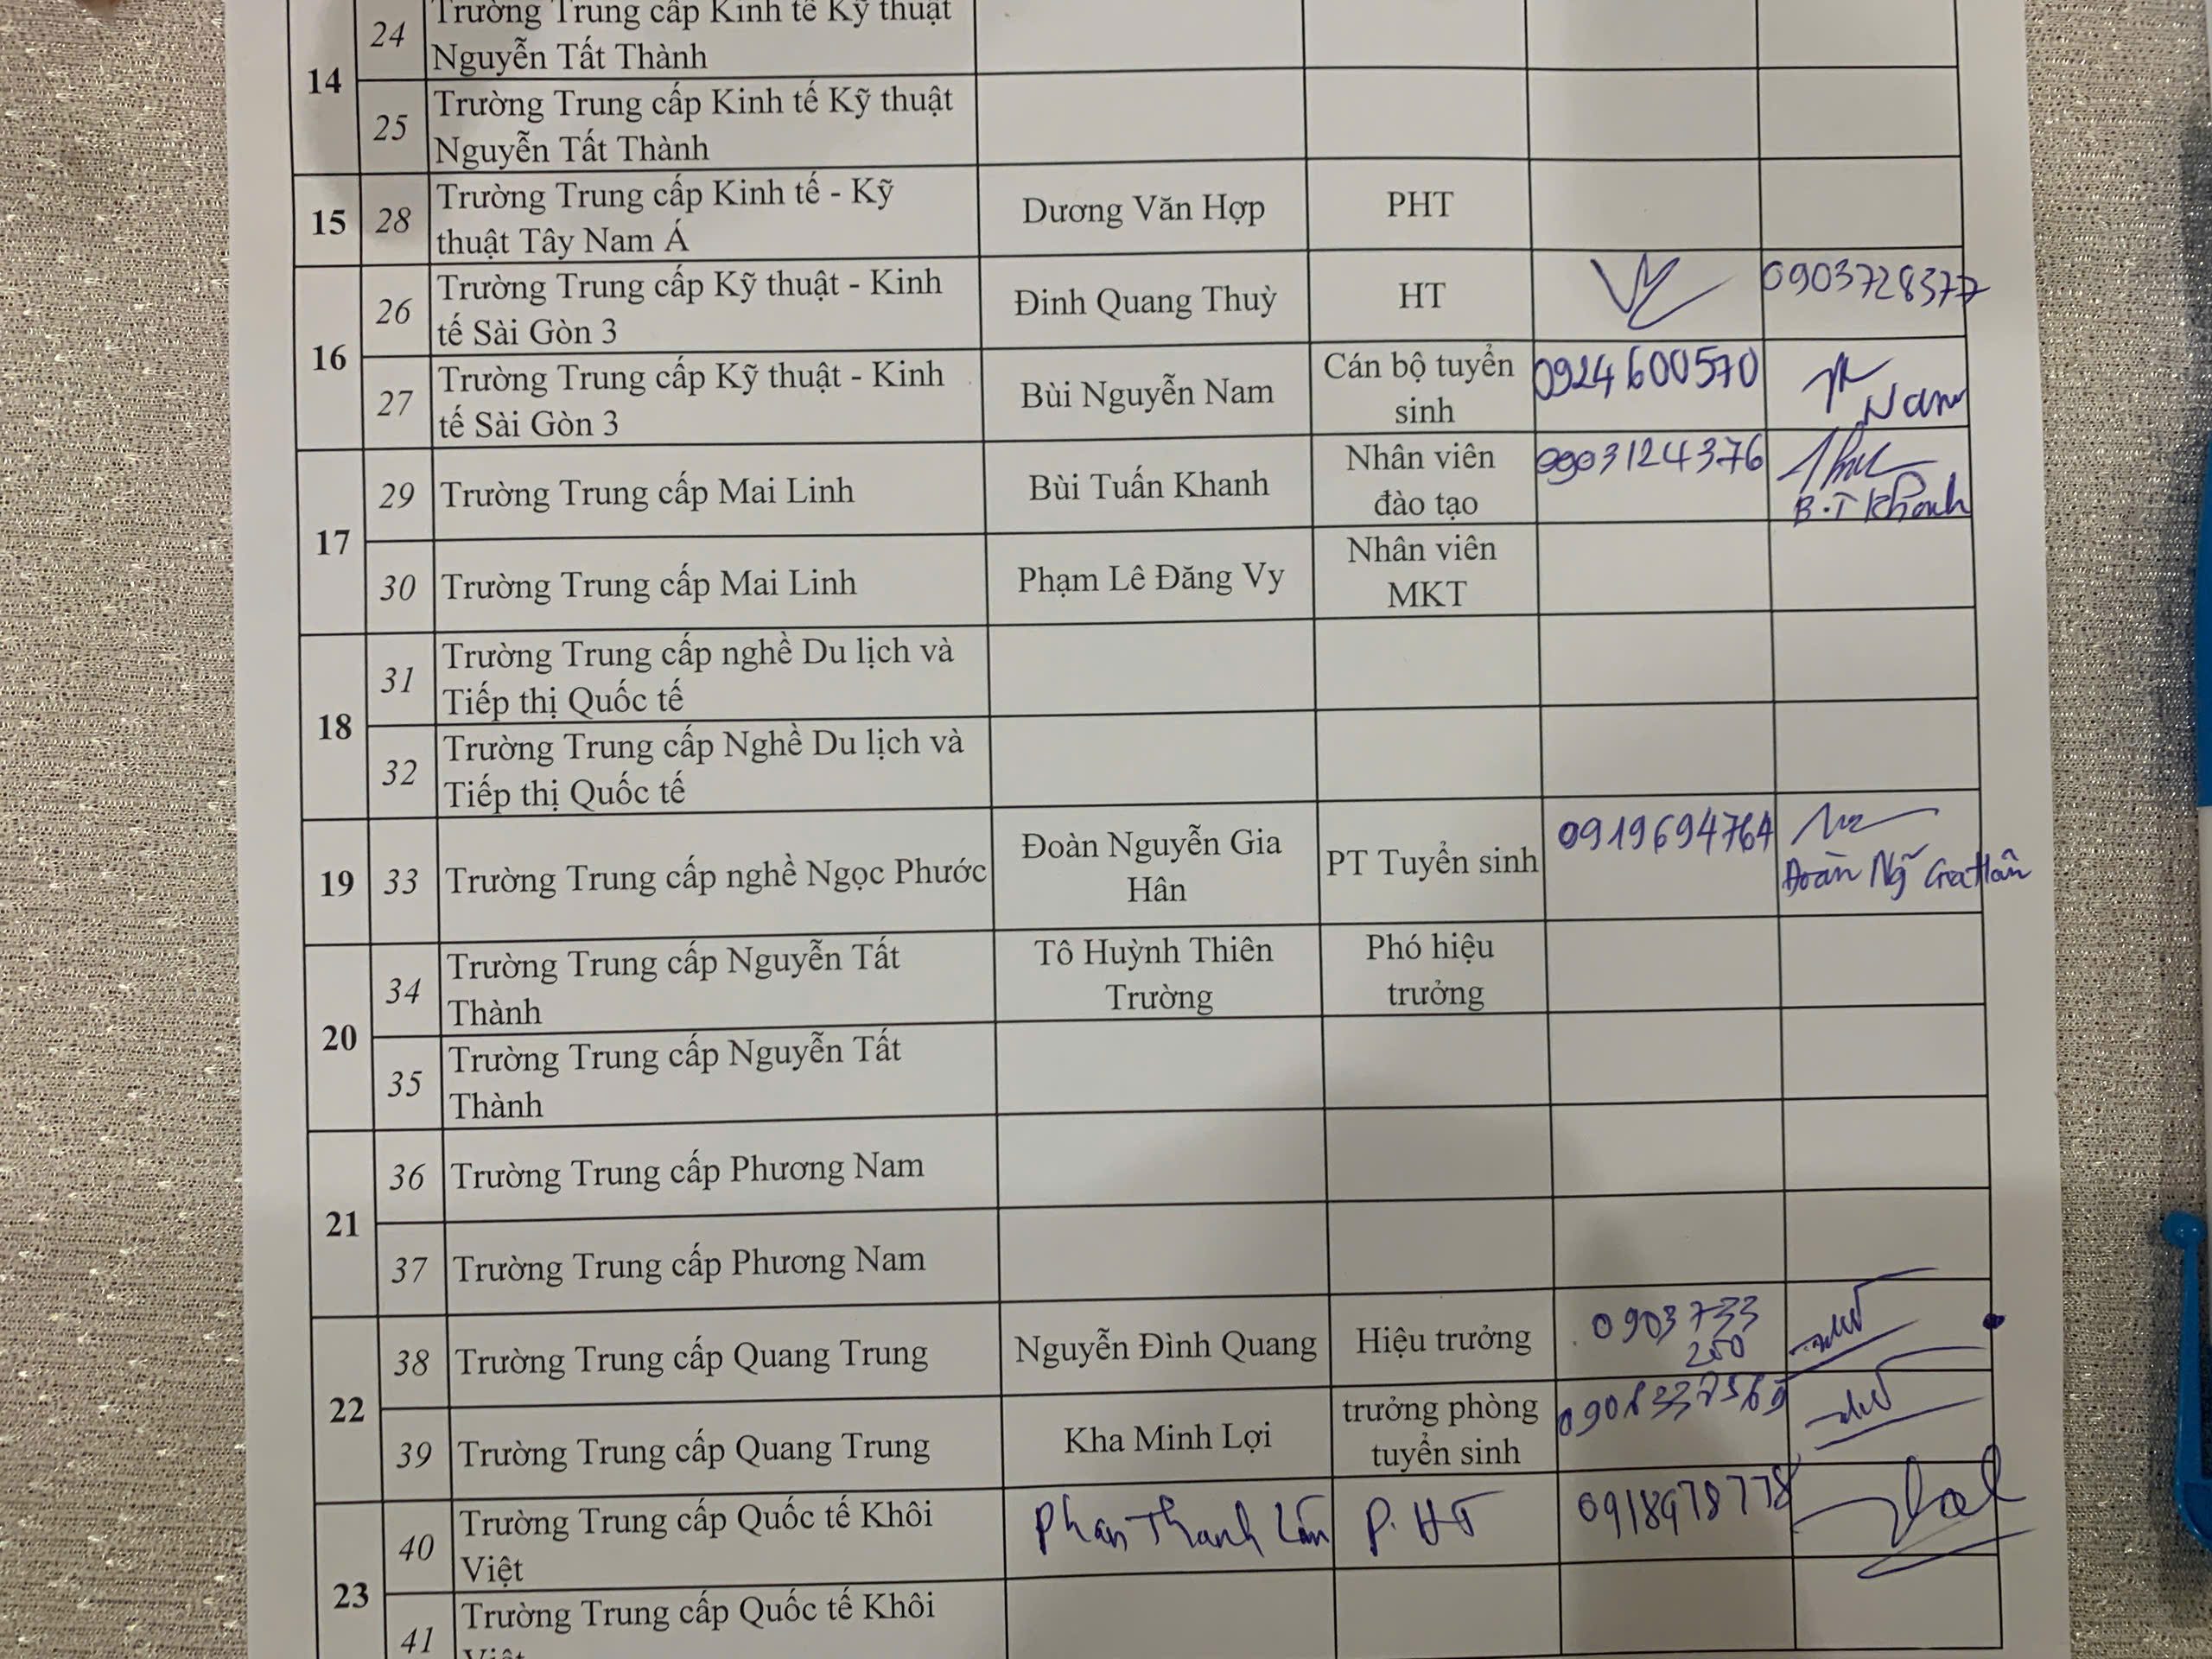 24 Trường Trung cấp Kinh tế Kỹ thuật
Nguyễn Tất Thành
14
25 Trường Trung cấp Kinh tế Kỹ thuật
Nguyễn Tất Thành
15 28 Trường Trung cấp Kinh tế - Kỹ
thuật Tây Nam Á
Dương Văn Hợp
PHT
16
26 Trường Trung cấp Kỹ thuật - Kinh
tế Sài Gòn 3
Đinh Quang Thuỳ
HT
0903728377
27 Trường Trung cấp Kỹ thuật - Kinh
tế Sài Gòn 3
Bùi Nguyễn Nam
Cán bộ tuyển
sinh
0924600570
Nam
17
29 Trường Trung cấp Mai Linh
Bùi Tuấn Khanh
Nhân viên
đào tạo
0903124376
B.T Khanh
30 Trường Trung cấp Mai Linh
Phạm Lê Đăng Vy
Nhân viên
MKT
18
31 Trường Trung cấp nghề Du lịch và
Tiếp thị Quốc tế
32 Trường Trung cấp Nghề Du lịch và
Tiếp thị Quốc tế
19 33 Trường Trung cấp nghề Ngọc Phước
Đoàn Nguyễn Gia
Hân
PT Tuyển sinh
0919694764
Đoàn Ng̃ Gia Hân
20
34 Trường Trung cấp Nguyễn Tất
Thành
Tô Huỳnh Thiên
Trường
Phó hiệu
trưởng
35 Trường Trung cấp Nguyễn Tất
Thành
21
36 Trường Trung cấp Phương Nam
37 Trường Trung cấp Phương Nam
22
38 Trường Trung cấp Quang Trung
Nguyễn Đình Quang
Hiệu trưởng
0903733
200
39 Trường Trung cấp Quang Trung
Kha Minh Lợi
trưởng phòng
tuyển sinh
23
40 Trường Trung cấp Quốc tế Khôi
Việt
Phan Thanh
P. HT
0918978778
41 Trường Trung cấp Quốc tế Khôi
Việt